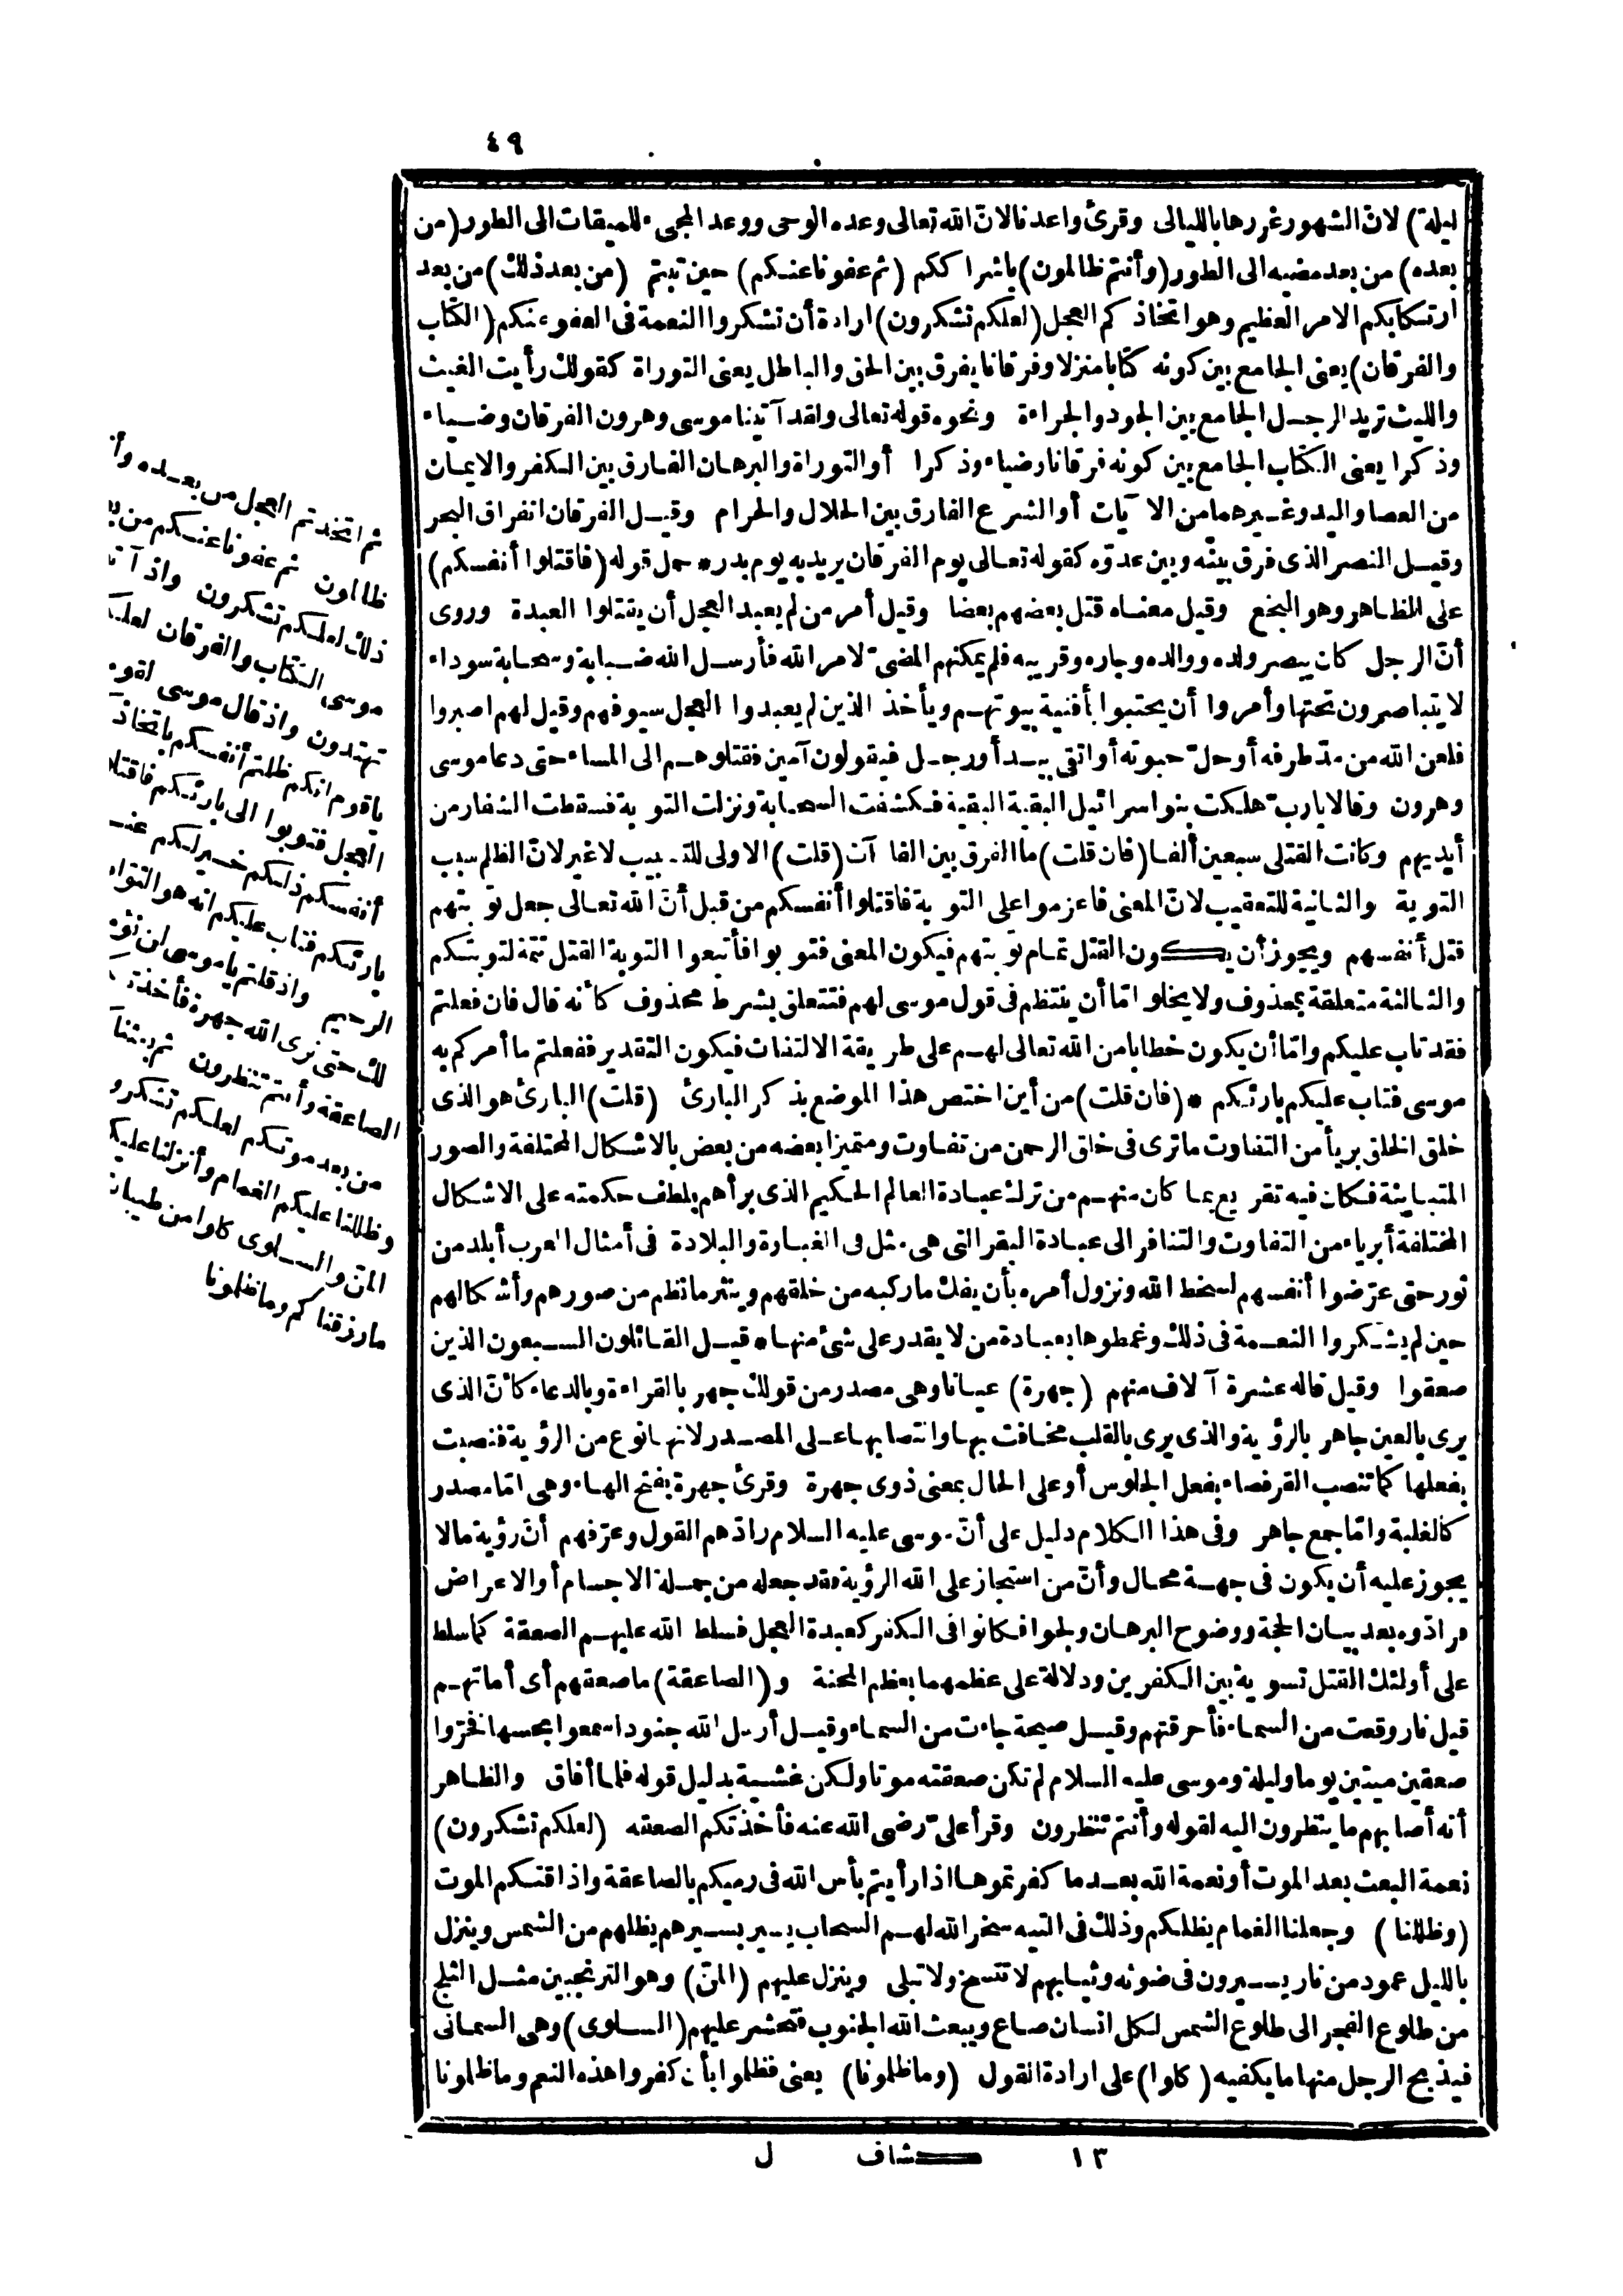 ٤٩
ليلة) لانّ الشهور غررها بالليالى وقرئ واعدنا لانّ الله تعالى وعده الوحى ووعد المجىء للميقات الى الطور (من
بعده) من بعد مضيه الى الطور (وأنتم ظالمون) باشراككم (ثم عفونا عنكم) حين تبتم (من بعد ذلك) من بعد
ارتكابكم الامر العظيم وهو اتخاذكم العجل (لعلكم تشكرون) ارادة أن تشكروا النعمة فى العفو عنكم (الكتاب
والفرقان) يعنى الجامع بين كونه كتابا منزلا وفرقانا يفرق بين الحق والباطل يعنى التوراة كقولك رأيت الغيث
والليث تريد الرجل الجامع بين الجود والجراءة ونحوه قوله تعالى ولقد آتينا موسى وهرون الفرقان وضياء
وذكرا يعنى الكتاب الجامع بين كونه فرقانا وضياء وذكرا أو التوراة والبرهان الفارق بين الكفر والايمان
من العصا واليد وغيرهما من الآيات أو الشرع الفارق بين الحلال والحرام وقيل الفرقان انفراق البحر
وقيل النصر الذى فرق بينه وبين عدوّه كقوله تعالى يوم الفرقان يريد به يوم بدر * حمل قوله (فاقتلوا أنفسكم)
على الظاهر وهو البخع وقيل معناه قتل بعضهم بعضا وقيل أمر من لم يعبد العجل أن يقتلوا العبدة وروى
أنّ الرجل كان يبصر ولده ووالده وجاره وقريبه فلم يمكنهم المضىّ لامر الله فأرسل الله ضبابة وسحابة سوداء
لا يتباصرون تحتها وأمروا أن يحتبوا بأفنية بيوتهم ويأخذ الذين لم يعبدوا العجل سيوفهم وقيل لهم اصبروا
فلعن الله من مدّ طرفه أو حلّ حبوته أو اتقى بيد أو رجل فيقولون آمين فقتلوهم الى المساء حتى دعا موسى
وهرون وقالا يا ربّ هلكت بنو اسرائيل البقية البقية فكشفت السحابة ونزلت التوبة فسقطت الشفار من
أيديهم وكانت القتلى سبعين ألفا (فان قلت) ما الفرق بين الفاآت (قلت) الاولى للتسبيب لا غير لانّ الظلم سبب
التوبة والثانية للتعقيب لانّ المعنى فاعزموا على التوبة فاقتلوا أنفسكم من قبل أنّ الله تعالى جعل توبتهم
قتل أنفسهم ويجوز أن يكون القتل تمام توبتهم فيكون المعنى فتوبوا فأتبعوا التوبة القتل تتمة لتوبتكم
والثالثة متعلقة بمحذوف ولا يخلو امّا أن ينتظم فى قول موسى لهم فتتعلق بشرط محذوف كأنه قال فان فعلتم
فقد تاب عليكم وامّا أن يكون خطابا من الله تعالى لهم على طريقة الالتفات فيكون التقدير ففعلتم ما أمركم به
موسى فتاب عليكم بارئكم * (فان قلت) من أين اختص هذا الموضع بذكر البارئ (قلت) البارئ هو الذى
خلق الخلق بريأ من التفاوت ما ترى فى خلق الرحمن من تفاوت ومتميزا بعضه من بعض بالاشكال المختلفة والصور
المتباينة فكان فيه تقريع بما كان منهم من ترك عبادة العالم الحكيم الذى برأهم بلطف حكمته على الاشكال
المختلفة أبرياء من التفاوت والتنافر الى عبادة البقر التى هى مثل فى الغباوة والبلادة فى أمثال العرب أبلد من
ثور حتى عرّضوا أنفسهم لسخط الله ونزول أمره بأن يفك ما ركبه من خلقهم وينثر ما نظم من صورهم وأشكالهم
حين لم يشكروا النعمة فى ذلك وغمطوها بعبادة من لا يقدر على شئ منها * قيل القائلون السبعون الذين
صعقوا وقيل قاله عشرة آلاف منهم (جهرة) عيانا وهى مصدر من قولك جهر بالقراءة وبالدعاء كأنّ الذى
يرى بالعين جاهر بالرؤية والذى يرى بالقلب مخافت بها وانتصابها على المصدر لانها نوع من الرؤية فنصبت
بفعلها كما تنصب القرفصاء بفعل الجلوس أو على الحال بمعنى ذوى جهرة وقرئ جهرة بفتح الهاء وهى امّا مصدر
كالغلبة وامّا جمع جاهر وفى هذا الكلام دليل على أنّ موسى عليه السلام رادّهم القول وعرّفهم أنّ رؤية ما لا
يجوز عليه أن يكون فى جهة محال وأنّ من استجاز على الله الرؤية فقد جعله من جملة الاجسام أو الاعراض
فرادّوه بعد بيان الحجة ووضوح البرهان ولجوا فكانوا فى الكفر كعبدة العجل فسلط الله عليهم الصعقة كما سلط
على أولئك القتل تسوية بين الكفرين ودلالة على عظمهما بعظم المحنة و (الصاعقة) ما صعقهم أى أماتهم
قيل نار وقعت من السماء فأحرقتهم وقيل صيحة جاءت من السماء وقيل أرسل الله جنودا سمعوا بحسها فخرّوا
صعقين ميتين يوما وليلة وموسى عليه السلام لم تكن صعقته موتا ولكن غشية بدليل قوله فلما أفاق والظاهر
أنه أصابهم ما ينظرون اليه لقوله وأنتم تنظرون وقرأ علىّ رضى الله عنه فأخذتكم الصعقة (لعلكم تشكرون)
نعمة البعث بعد الموت أو نعمة الله بعد ما كفرتموها اذا رأيتم بأس الله فى رميكم بالصاعقة واذاقتكم الموت
(وظللنا) وجعلنا الغمام يظلكم وذلك فى التيه سخر الله لهم السحاب يسير بسيرهم يظلهم من الشمس وينزل
بالليل عمود من نار يسيرون فى ضوئه وثيابهم لا تتسخ ولا تبلى وينزل عليهم (المنّ) وهو الترنجبين مثل الثلج
من طلوع الفجر الى طلوع الشمس لكل انسان صاع ويبعث الله الجنوب فتحشر عليهم (السلوى) وهى السمانى
فيذبح الرجل منها ما يكفيه (كلوا) على ارادة القول (وما ظلمونا) يعنى فظلموا بأن كفروا هذه النعم وما ظلمونا
ثم اتخذتم العجل من بعده
ظالمون ثم عفونا عنكم من
ذلك لعلكم تشكرون واذ
موسى الكتاب والفرقان
تهتدون واذ قال موسى
يا قوم انكم ظلمتم أنفسكم باتخاذ
العجل فتوبوا الى بارئكم
أنفسكم ذلكم خير لكم
بارئكم فتاب عليكم انه هو
الرحيم واذ قلتم يا موسى لن
لك حتى نرى الله جهرة
الصاعقة وأنتم تنظرون ثم
من بعد موتكم لعلكم
وظللنا عليكم الغمام وأنزلنا
المنّ والسلوى كلوا من
ما رزقناكم وما ظلمونا
١٣ كشاف ل